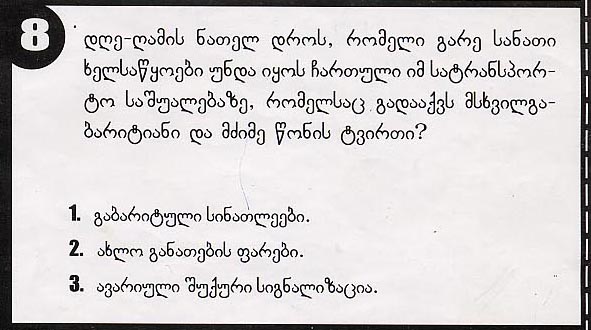 8
დღე-ღამის ნათელ დროს, რომელი გარე სანათი
ხელსაწყოები უნდა იყოს ჩართული იმ სატრანსპორ-
ტო საშუალებაზე, რომელსაც გადააქვს მსხვილგა-
ბარიტიანი და მძიმე წონის ტვირთი?
1. გაბარიტული სინათლეები.
2. ახლო განათების ფარები.
3. ავარიული შუქური სიგნალიზაცია.